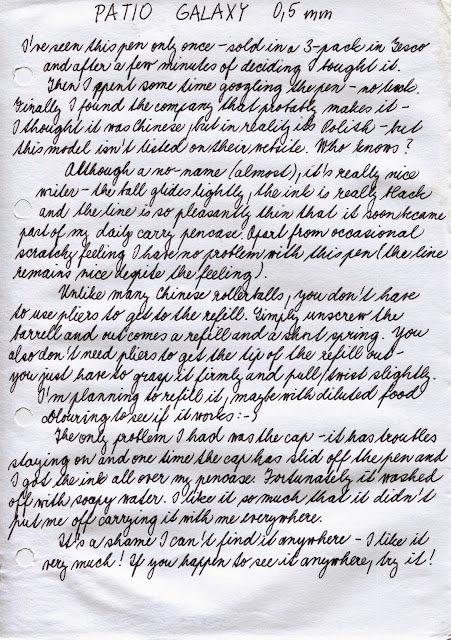 PATIO GALAXY 0,5 mm
I've seen this pen only once - sold in a 3-pack in Tesco
and after a few minutes of deciding I bought it.
Then I spent some time googling the pen - no luck.
Finally I found the company that probably makes it -
I thought it was Chinese, but in reality it's Polish - but
this model isn't listed on their website. Who knows?
Although a no-name (almost), it's really nice
writer - the ball glides lightly, the ink is really black
and the line is so pleasantly thin that it soon became
part of my daily carry pencase. Apart from occasional
scratchy feeling I have no problem with this pen (the line
remains nice despite the feeling).
Unlike many Chinese rollerballs, you don't have
to use pliers to get to the refill. Simply unscrew the
barrell and out comes a refill and a short spring. You
also don't need pliers to get the tip of the refill out -
you just have to grasp it firmly and pull/twist slightly.
I'm planning to refill it, maybe with diluted food
colouring to see if it works :-)
The only problem I had was the cap - it has troubles
staying on and one time the cap has slid off the pen and
I got the ink all over my pencase. Fortunately it washed
off with soapy water. I like it so much that it didn't
put me off carrying it with me everywhere.
It's a shame I can't find it anywhere - I like it
very much! If you happen to see it anywhere, try it!